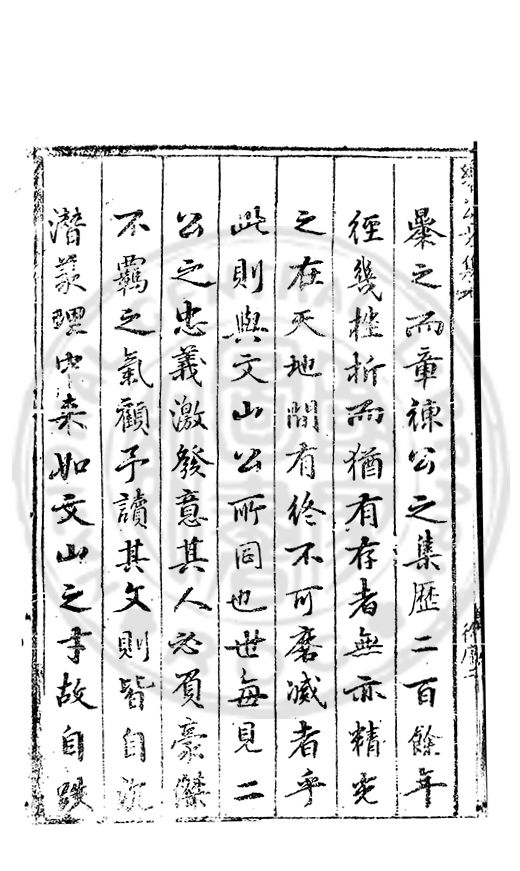 暴之而章疎公之集歷二百餘年
徑幾挫折而猶有存者無亦精光
之在天地間有終不可磨滅者乎
此則與文山公所同也世每見二
公之忠義激發意其人必負豪傑
不羈之氣顧予讀其文則皆自沉
潛義理中來如文山之才故自